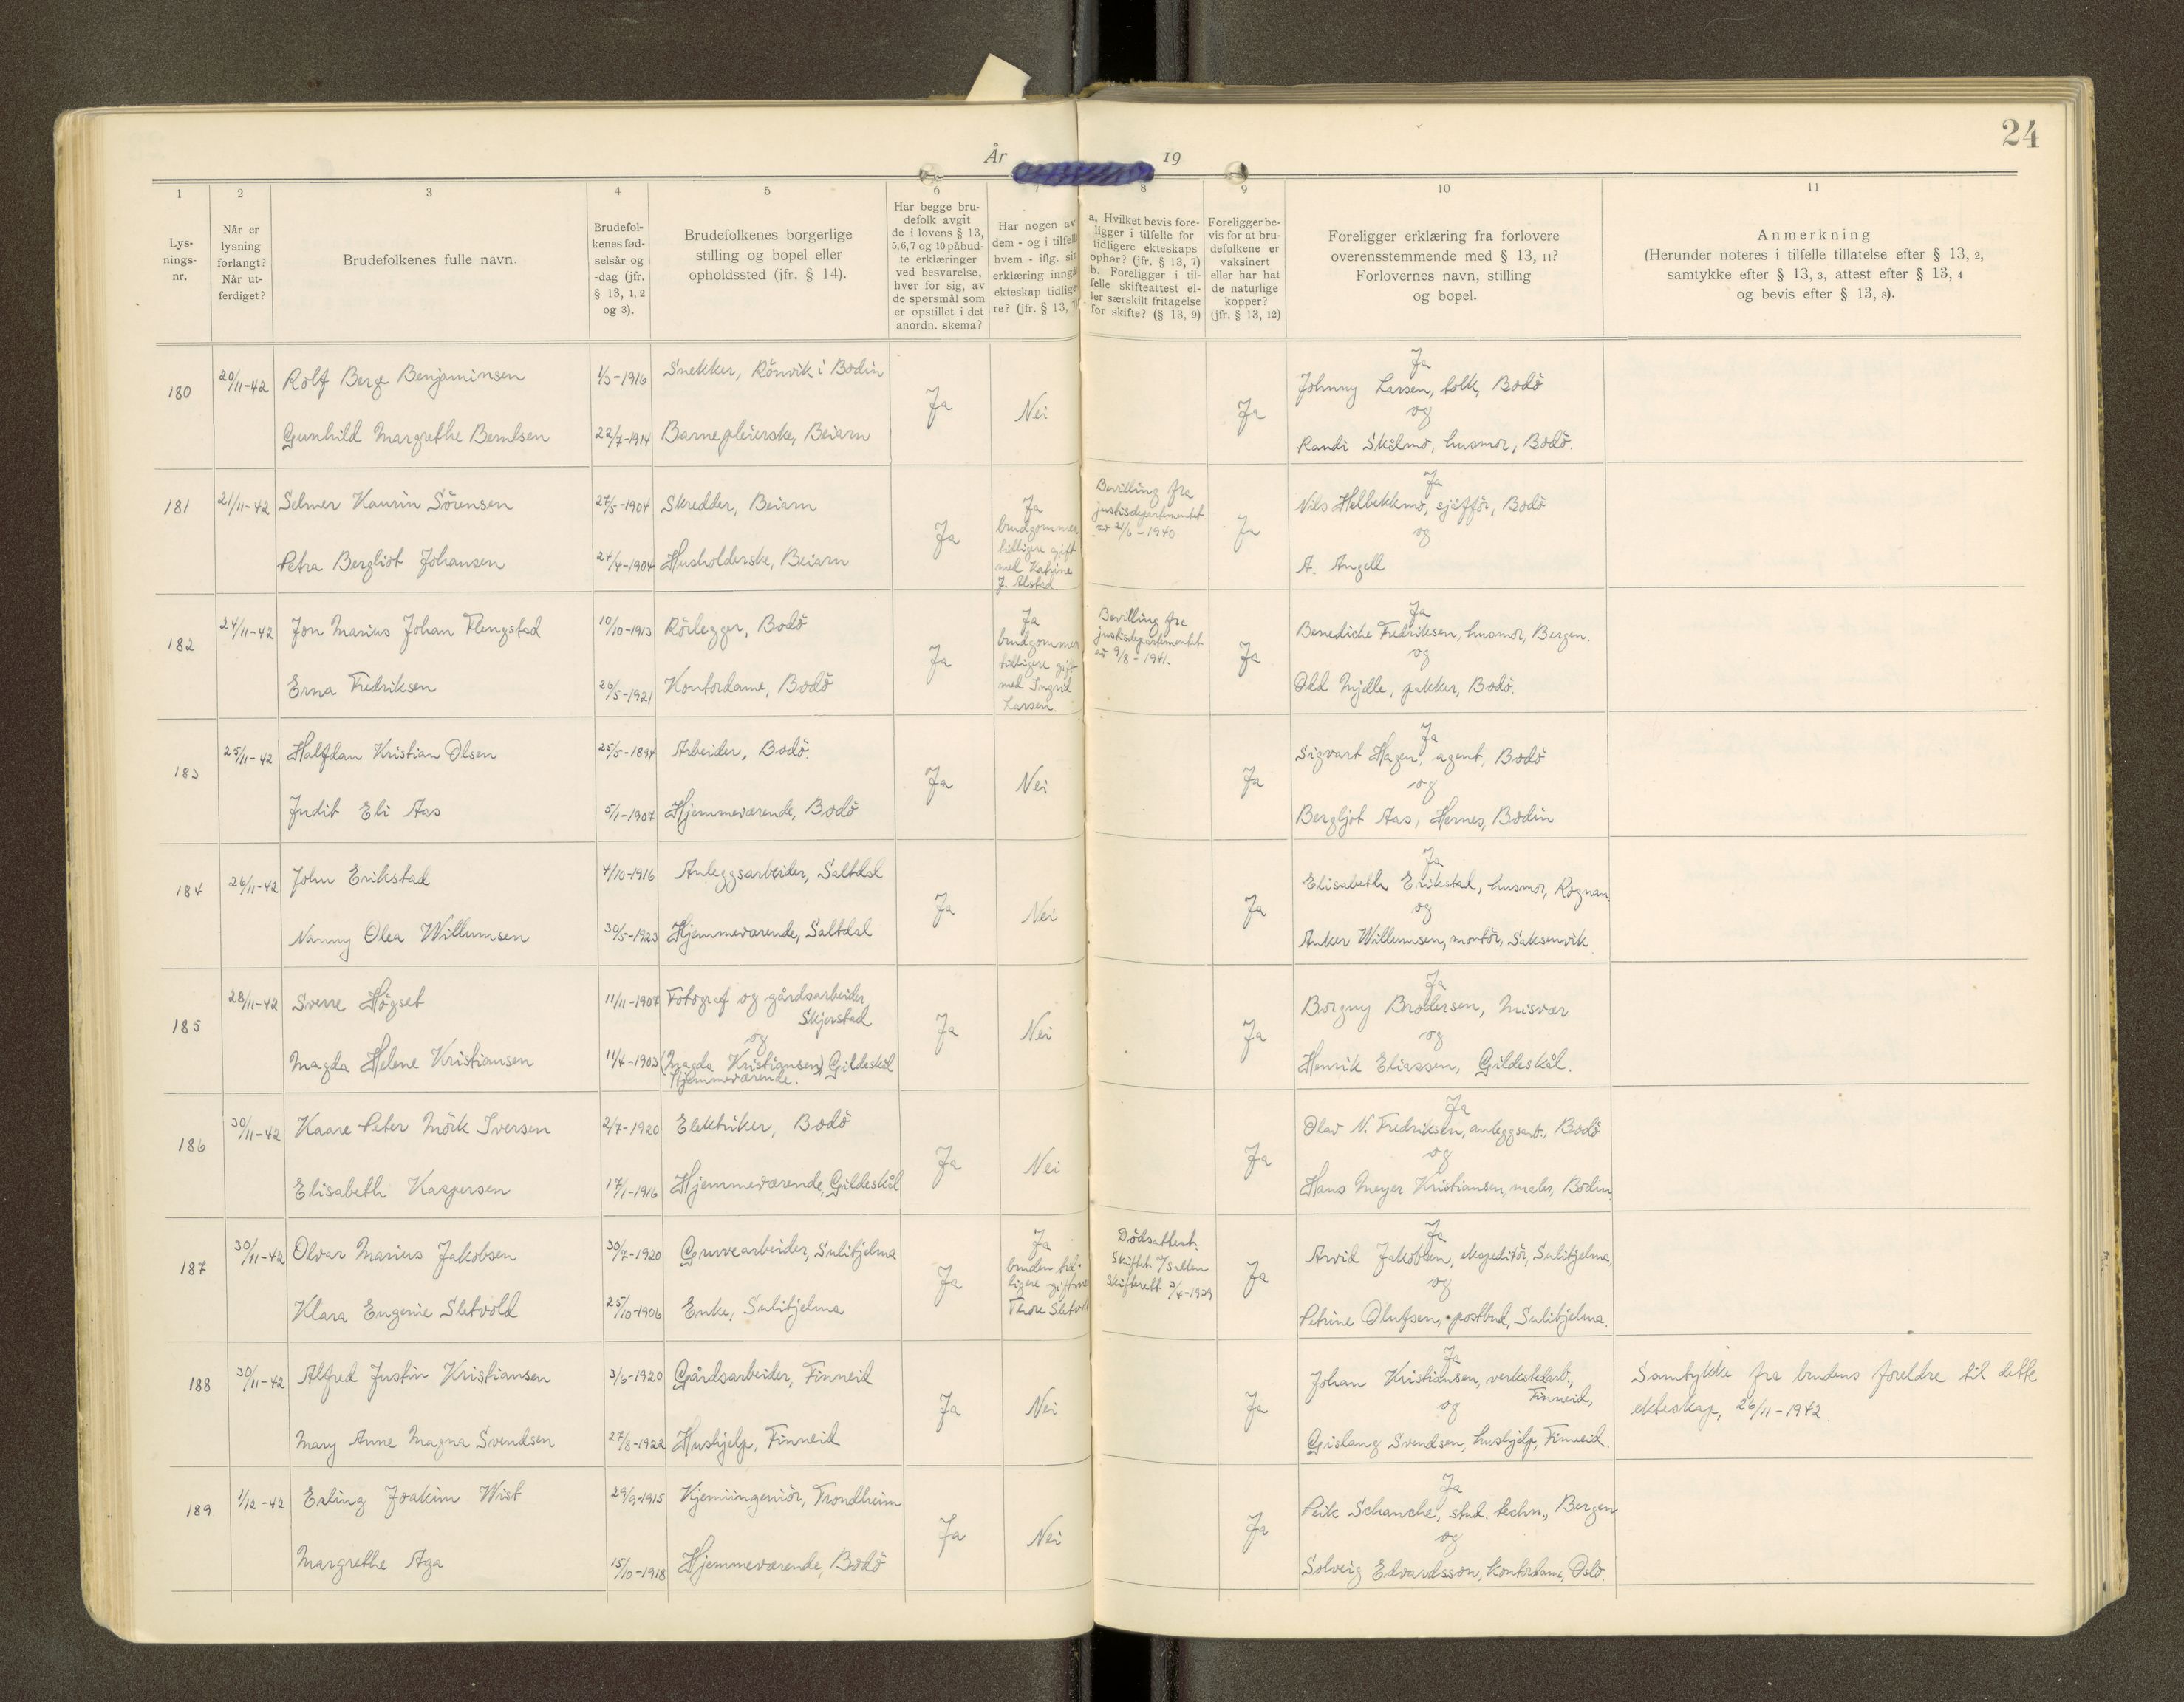 24
År 19
1 2 3 4 5 6 7 8 9 10 11
Lys-
nings-
nr.
Når er
lysning
forlangt?
Når ut-
ferdiget?
Brudefolkenes fulle navn.
Brudefol-
kenes fød-
selsår og
-dag (jfr.
§ 13, 1, 2
og 3).
Brudefolkenes borgerlige
stilling og bopel eller
opholdssted (jfr. § 14).
Har begge bru-
defolk avgit
de i lovens § 13,
5,6,7 og 10 påbud-
te erklæringer
ved besvarelse,
hver for sig, av
de spørsmål som
er opstillet i det
anordn. skema?
Har nogen av
dem - og i tilfelle
hvem - iflg. sin
erklæring inngå
ekteskap tidlige-
re? (jfr. § 13, 7)
a. Hvilket bevis fore-
ligger i tilfelle for
tidligere ekteskaps
ophør? (jfr. § 13, 7)
b. Foreligger i til-
felle skifteattest el-
ler særskilt fritagelse
for skifte? (§ 13, 9)
Foreligger be-
vis for at bru-
defolkene er
vaksinert
eller har hat
de naturlige
kopper?
(jfr. § 13, 12)
Foreligger erklæring fra forlovere
overensstemmende med § 13, 11?
Forlovernes navn, stilling
og bopel.
Anmerkning
(Herunder noteres i tilfelle tillatelse efter § 13, 2,
samtykke efter § 13, 3, attest efter § 13, 4
og bevis efter § 13, 8).
180 20/11-42 Rolf Berge Benjaminsen 1/3-1916 Snekker, Rönvik i Bodin
Gunhild Margrethe Berntsen 22/7-1914 Barnepleierske, Beiarn
Ja Nei Ja
Ja
Johnny Larsen, tolk, Bodö
og
Randi Skålmo, husmor, Bodö.
181 21/11-42 Selmer Kaurin Sörensen 27/5-1904 Skredder, Beiarn
Petra Bergliot Johansen 24/4-1904 Husholderske, Beiarn
Ja
Ja
brudgommen
tidligere gift
med Katrine
J. Alstad.
Bevilling fra
justisdepartementet
av 21/6-1940
Ja
Ja
Nils Helbekkmo, sjåfför, Bodö
og
A. Angell
182 24/11-42 Jon Marius Johan Flengstad 10/10-1913 Rörlegger, Bodö
Erna Fredriksen 26/5-1921 Kontordame, Bodö
Ja
Ja
brudgommen
tidligere gift
med Ingrid
Larsen.
Bevilling fra
justisdepartementet
av 9/8-1941.
Ja
Ja
Benediche Fredriksen, husmor, Bergen.
og
Odd Mjelle, pakker, Bodö.
183 25/11-42 Halfdan Kristian Olsen 25/5-1894 Arbeider, Bodö.
Judit Eli Aas 5/1-1907 Hjemmeværende, Bodö
Ja Nei Ja
Ja
Sigvart Hagen, agent, Bodö
og
Bergljot Aas, Hernes, Bodin
184 26/11-42 John Erikstad 4/10-1916 Anleggsarbeider, Saltdal
Nanny Olea Willumsen 30/5-1923 Hjemmeværende, Saltdal
Ja Nei Ja
Ja
Elisabeth Erikstad, husmor, Rognan
og
Anker Willumsen, montör, Saksenvik
185 28/11-42 Sverre Högset 11/11-1907 Fotograf og gårdsarbeider,
Skjerstad
og
Magda Helene Kristiansen 11/4-1903 (Magda Kristiansen) Gildeskål
Hjemmeværende.
Ja Nei Ja
Ja
Borgny Brodersen, Misvær
og
Henrik Eliassen, Gildeskål.
186 30/11-42 Kaare Peter Mörk Iversen 2/7-1920 Elektriker, Bodö
Elisabeth Kaspersen 17/1-1916 Hjemmeværende, Gildeskål
Ja Nei Ja
Ja
Olav N. Fredriksen, anleggsarb., Bodö
og
Hans Meyer Kristiansen, maler, Bodin
187 30/11-42 Olvar Marius Jakobsen 30/7-1920 Gruvearbeider, Sulitjelma
Klara Engenie Sletvold 25/10-1906 Enke, Sulitjelma
Ja
Ja
bruden tid-
ligere gift med
Thore Sletvold
Dödsattest.
Skiftet v/Salten
skifterett 3/4-1929
Ja
Ja
Arvid Jakobsen, ekspeditör, Sulitjelma,
og
Petrine Olufsen, postbud, Sulitjelma.
188 30/11-42 Alfred Justin Kristiansen 3/6-1920 Gårdsarbeider, Finneid
Mary Anne Magna Svendsen 27/8-1922 Hushjelp, Finneid
Ja Nei Ja
Ja
Johan Kristiansen, verkstedarb.,
Finneid,
og
Gislaug Svendsen, hushjelp, Finneid.
Samtykke fra brudens foreldre til dette
ekteskap, 26/11-1942.
189 1/12-42 Erling Joakim Wist 29/9-1915 Kjemiingeniör, Trondheim
Margrethe Aga 15/10-1918 Hjemmeværende, Bodö
Ja Nei Ja
Ja
Peik Schanche, stud. techn., Bergen
og
Solveig Edvardsson, kontordame, Oslo.